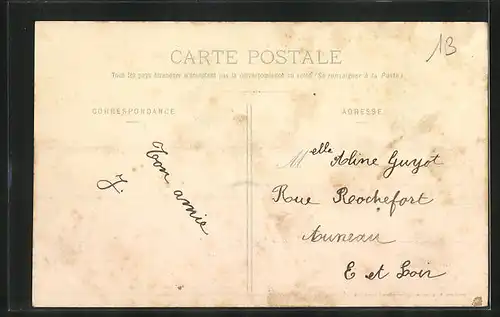 13
CARTE POSTALE
Tous les pays étrangers n'acceptent pas la correspondance au verso (Se renseigner à la Poste)
CORRESPONDANCE
ADRESSE
Ton amie
J.
Melle Aline Guyot
Rue Rochefort
Auneau
E et Loir